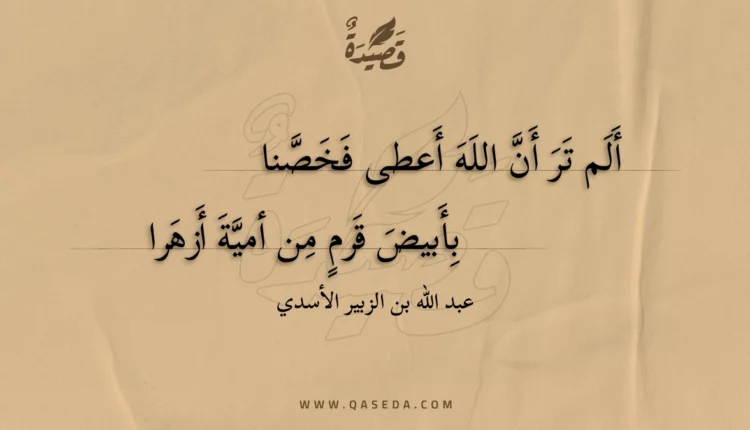 قَصِيْدَةٌ
أَلَم تَرَ أَنَّ اللَهَ أَعطى فَخَصَّنا
بِأَبيضَ قَرمٍ مِن أميَّةَ أَزهَرا
عبد الله بن الزبير الأسدي
WWW.QASEDA.COM